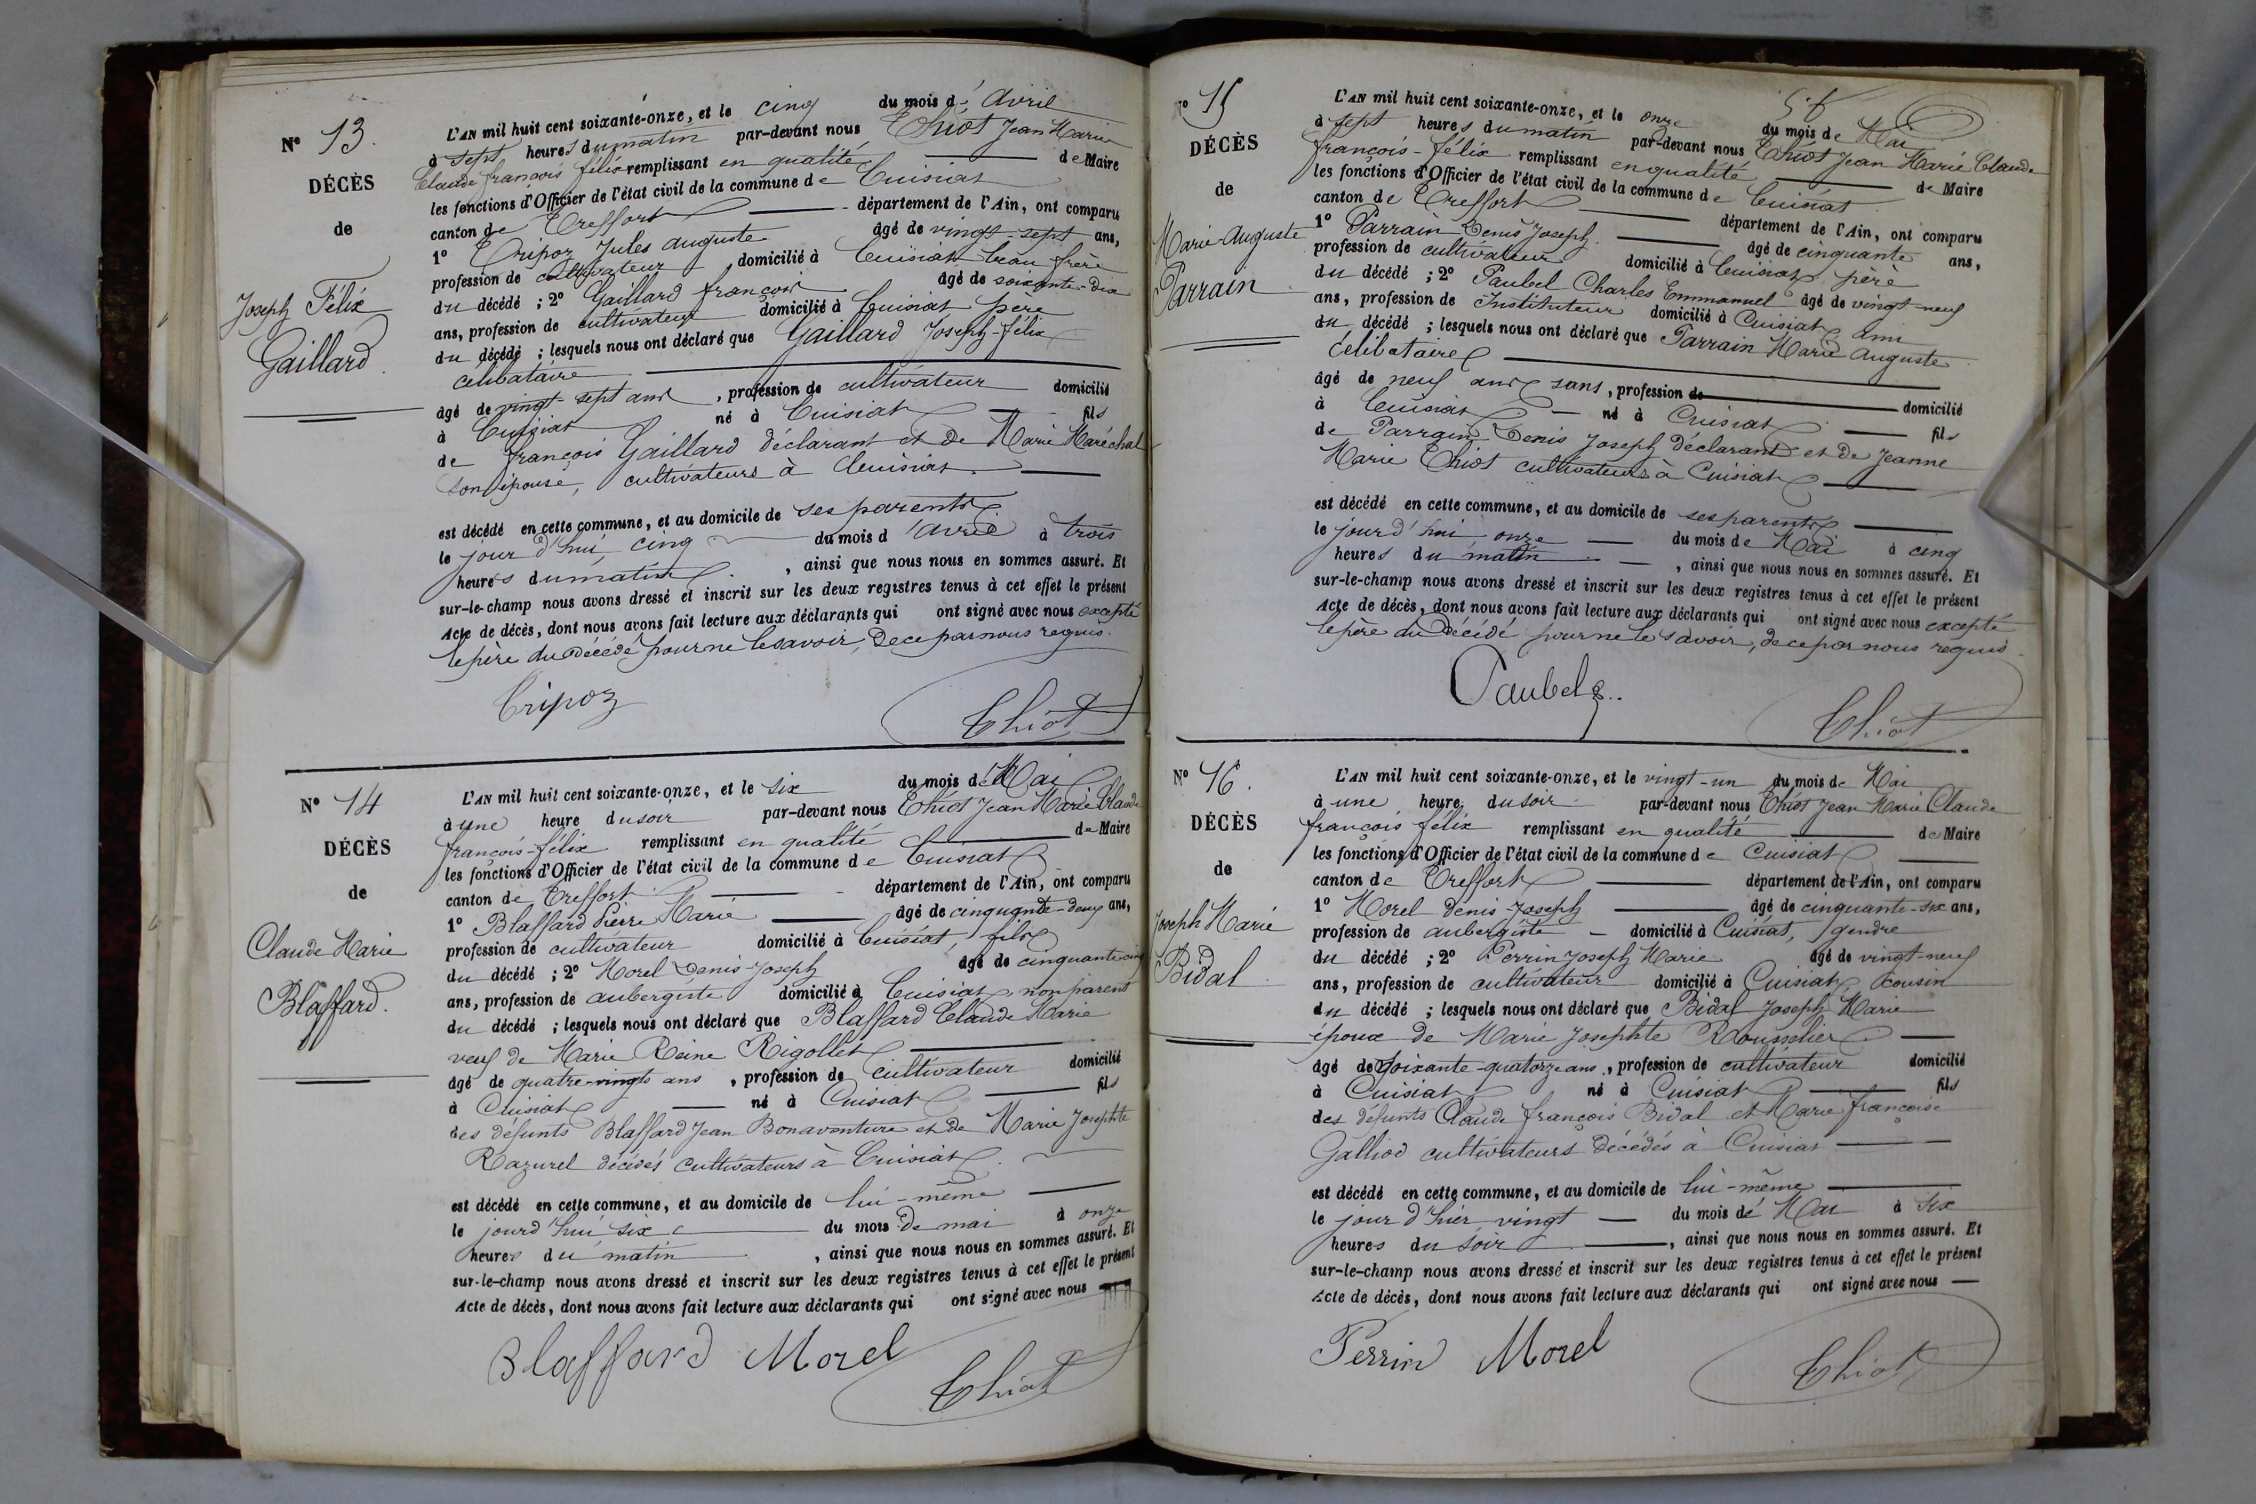 N° 13.
DÉCÈS
de
Joseph Félix
Gaillard.
L'AN mil huit cent soixante-onze, et le cinq du mois d'Avril
à sept heures du matin par-devant nous Chiot Jean Marie
Claude françois félix remplissant en qualité de Maire
les fonctions d'Officier de l'état civil de la commune de Cuisiat
canton de Treffort département de l'Ain, ont comparu
1° Cripoz Jules auguste âgé de vingt-sept ans,
profession de cultivateur domicilié à Cuisiat beau frère
du décédé ; 2° Gaillard françois âgé de soixante-dix
ans, profession de cultivateur domicilié à Cuisiat père
du décédé ; lesquels nous ont déclaré que Gaillard Joseph-félix
célibataire
âgé de vingt-sept ans , profession de cultivateur domicilié
à Cuisiat né à Cuisiat fils
de françois Gaillard déclarant et de Marie Maréchal
son épouse, cultivateurs à Cuisiat.
est décédé en cette commune, et au domicile de ses parents
le jour d'hui, cinq du mois d'avril à trois
heures du matin , ainsi que nous nous en sommes assuré. Et
sur-le-champ nous avons dressé et inscrit sur les deux registres tenus à cet effet le présent
Acte de décès, dont nous avons fait lecture aux déclarants qui ont signé avec nous excepté
le père du décédé pour ne le savoir, de ce par nous requis.
Cripoz Chiot
N° 14
DÉCÈS
de
Claude Marie
Blaffard.
L'AN mil huit cent soixante-onze, et le six du mois de Mai
à une heure du soir par-devant nous Chiot Jean Marie Claude
françois-félix remplissant en qualité de Maire
les fonctions d'Officier de l'état civil de la commune de Cuisiat
canton de Treffort département de l'Ain, ont comparu
1° Blaffard Pierre Marie âgé de cinquante-deux ans,
profession de cultivateur domicilié à Cuisiat, fils
du décédé ; 2° Morel Denis-Joseph âgé de cinquante-cinq
ans, profession de aubergiste domicilié à Cuisiat, non parent
du décédé ; lesquels nous ont déclaré que Blaffard Claude Marie
veuf de Marie Reine Rigollet
âgé de quatre-vingts ans , profession de cultivateur domicilié
à Cuisiat né à Cuisiat fils
des défunts Blaffard Jean Bonaventure et de Marie Josephte
Razurel décédés cultivateurs à Cuisiat.
est décédé en cette commune, et au domicile de lui-même
le jourd'hui six du mois de mai à onze
heures du matin , ainsi que nous nous en sommes assuré. Et
sur-le-champ nous avons dressé et inscrit sur les deux registres tenus à cet effet le présent
Acte de décès, dont nous avons fait lecture aux déclarants qui ont signé avec nous
Blaffard Morel Chiot
N° 15
DÉCÈS
de
Marie-Auguste
Parrain
L'AN mil huit cent soixante-onze, et le onze du mois de Mai
à sept heures du matin par-devant nous Chiot Jean Marie Claude
françois-félix remplissant en qualité de Maire
les fonctions d'Officier de l'état civil de la commune de Cuisiat
canton de Treffort département de l'Ain, ont comparu
1° Parrain Denis Joseph âgé de cinquante ans,
profession de cultivateur domicilié à Cuisiat, père
du décédé ; 2° Paubel Charles Emmanuel âgé de vingt-neuf
ans, profession de Instituteur domicilié à Cuisiat ami
du décédé ; lesquels nous ont déclaré que Parrain Marie Auguste
célibataire
âgé de neuf ans sans , profession de domicilié
à Cuisiat né à Cuisiat fils
de Parrain Denis Joseph déclarant et de Jeanne
Marie Chiot cultivateurs à Cuisiat
est décédé en cette commune, et au domicile de ses parents
le jourd'hui onze du mois de Mai à cinq
heures du matin , ainsi que nous nous en sommes assuré. Et
sur-le-champ nous avons dressé et inscrit sur les deux registres tenus à cet effet le présent
Acte de décès, dont nous avons fait lecture aux déclarants qui ont signé avec nous excepté
le père du décédé pour ne le savoir, de ce par nous requis.
Paubel Chiot
N° 16.
DÉCÈS
de
Joseph Marie
Bidal
L'AN mil huit cent soixante-onze, et le vingt-un du mois de Mai
à une heure du soir par-devant nous Chiot Jean Marie Claude
françois félix remplissant en qualité de Maire
les fonctions d'Officier de l'état civil de la commune de Cuisiat
canton de Treffort département de l'Ain, ont comparu
1° Morel Denis-Joseph âgé de cinquante-six ans,
profession de aubergiste domicilié à Cuisiat, gendre
du décédé ; 2° Perrin Joseph Marie âgé de vingt-neuf
ans, profession de cultivateur domicilié à Cuisiat, cousin
du décédé ; lesquels nous ont déclaré que Bidal Joseph Marie
époux de Marie Josephte Rousselier
âgé de soixante-quatorze ans , profession de cultivateur domicilié
à Cuisiat né à Cuisiat fils
des défunts Claude françois Bidal et Marie françoise
Galliod cultivateurs décédés à Cuisiat
est décédé en cette commune, et au domicile de lui-même
le jour d'hier vingt du mois de Mai à six
heures du soir , ainsi que nous nous en sommes assuré. Et
sur-le-champ nous avons dressé et inscrit sur les deux registres tenus à cet effet le présent
Acte de décès, dont nous avons fait lecture aux déclarants qui ont signé avec nous
Perrin Morel Chiot